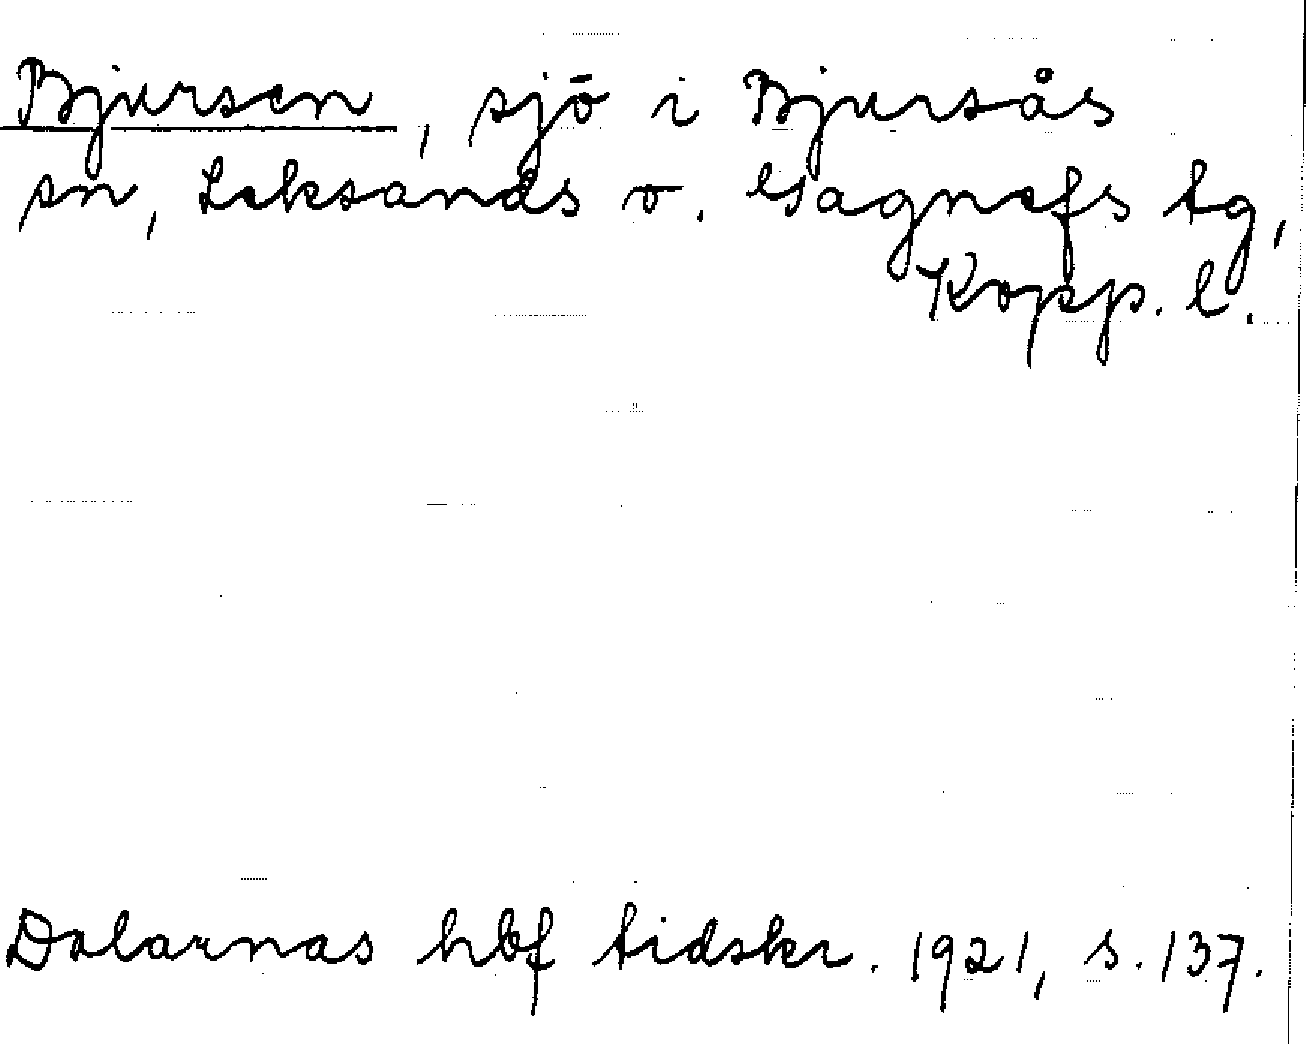 Bjursen, sjö i Bjursås
sn, Leksands o. Gagnefs tg,
Kopp. l.
Dalarnas hbf tidskr. 1921, s. 137.